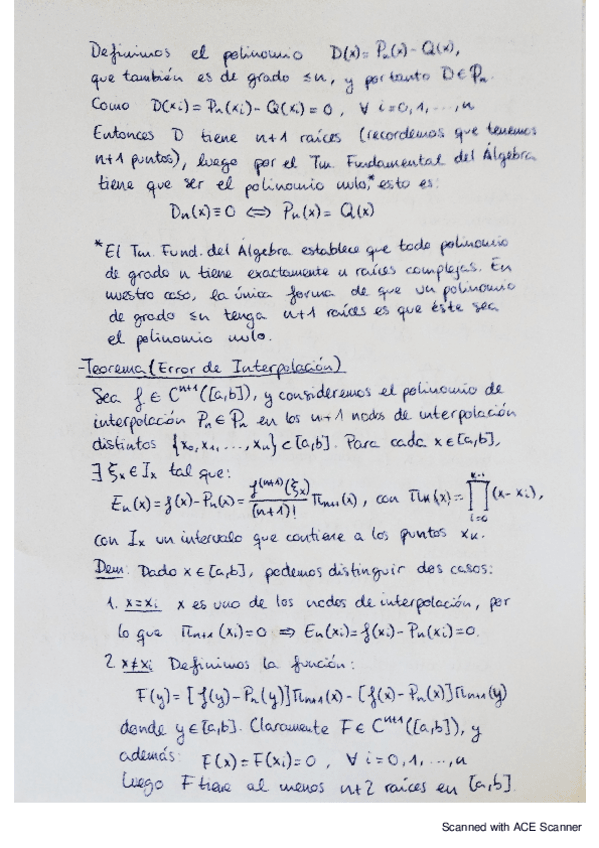 Definimos el polinomio D(x)= Pn(x)- Q(x),
que también es de grado ≤n, y por tanto D∈Pn.
Como D(xi)=Pn(xi)-Q(xi)=0, ∀ i=0,1,...,n
Entonces D tiene n+1 raíces (recordemos que tenemos
n+1 puntos), luego por el Tm. Fundamental del Álgebra
tiene que ser el polinomio nulo,* esto es:
Dn(x)≡0 ⟺ Pn(x)= Q(x)
*El Tm. Fund. del Álgebra establece que todo polinomio
de grado n tiene exactamente n raíces complejas. En
nuestro caso, la única forma de que un polinomio
de grado ≤n tenga n+1 raíces es que éste sea
el polinomio nulo.
-Teorema (Error de Interpolación)
Sea f ∈ C^{n+1}([a,b]), y consideremos el polinomio de
interpolación Pn∈Pn en los n+1 nodos de interpolación
distintos {x0,x1,...,xn}⊂[a,b]. Para cada x∈[a,b],
∃ ξx∈Ix tal que:
En(x)=f(x)-Pn(x)= f^{(n+1)}(ξx)/(n+1)! Πn+1(x), con Πn(x)= ∏_{i=0}^{n-1} (x-xi),
con Ix un intervalo que contiene a los puntos xn.
Dem: Dado x∈[a,b], podemos distinguir dos casos:
1. x=xi x es uno de los nodos de interpolación, por
lo que Πn+1(xi)=0 ⟹ En(xi)=f(xi)-Pn(xi)=0.
2. x≠xi Definimos la función:
F(y)=[f(y)-Pn(y)]Πn+1(x)-[f(x)-Pn(x)]Πn+1(y)
donde y∈[a,b]. Claramente F∈C^{n+1}([a,b]), y
además: F(x)=F(xi)=0, ∀ i=0,1,...,n
Luego F tiene al menos n+2 raíces en [a,b].
Scanned with ACE Scanner